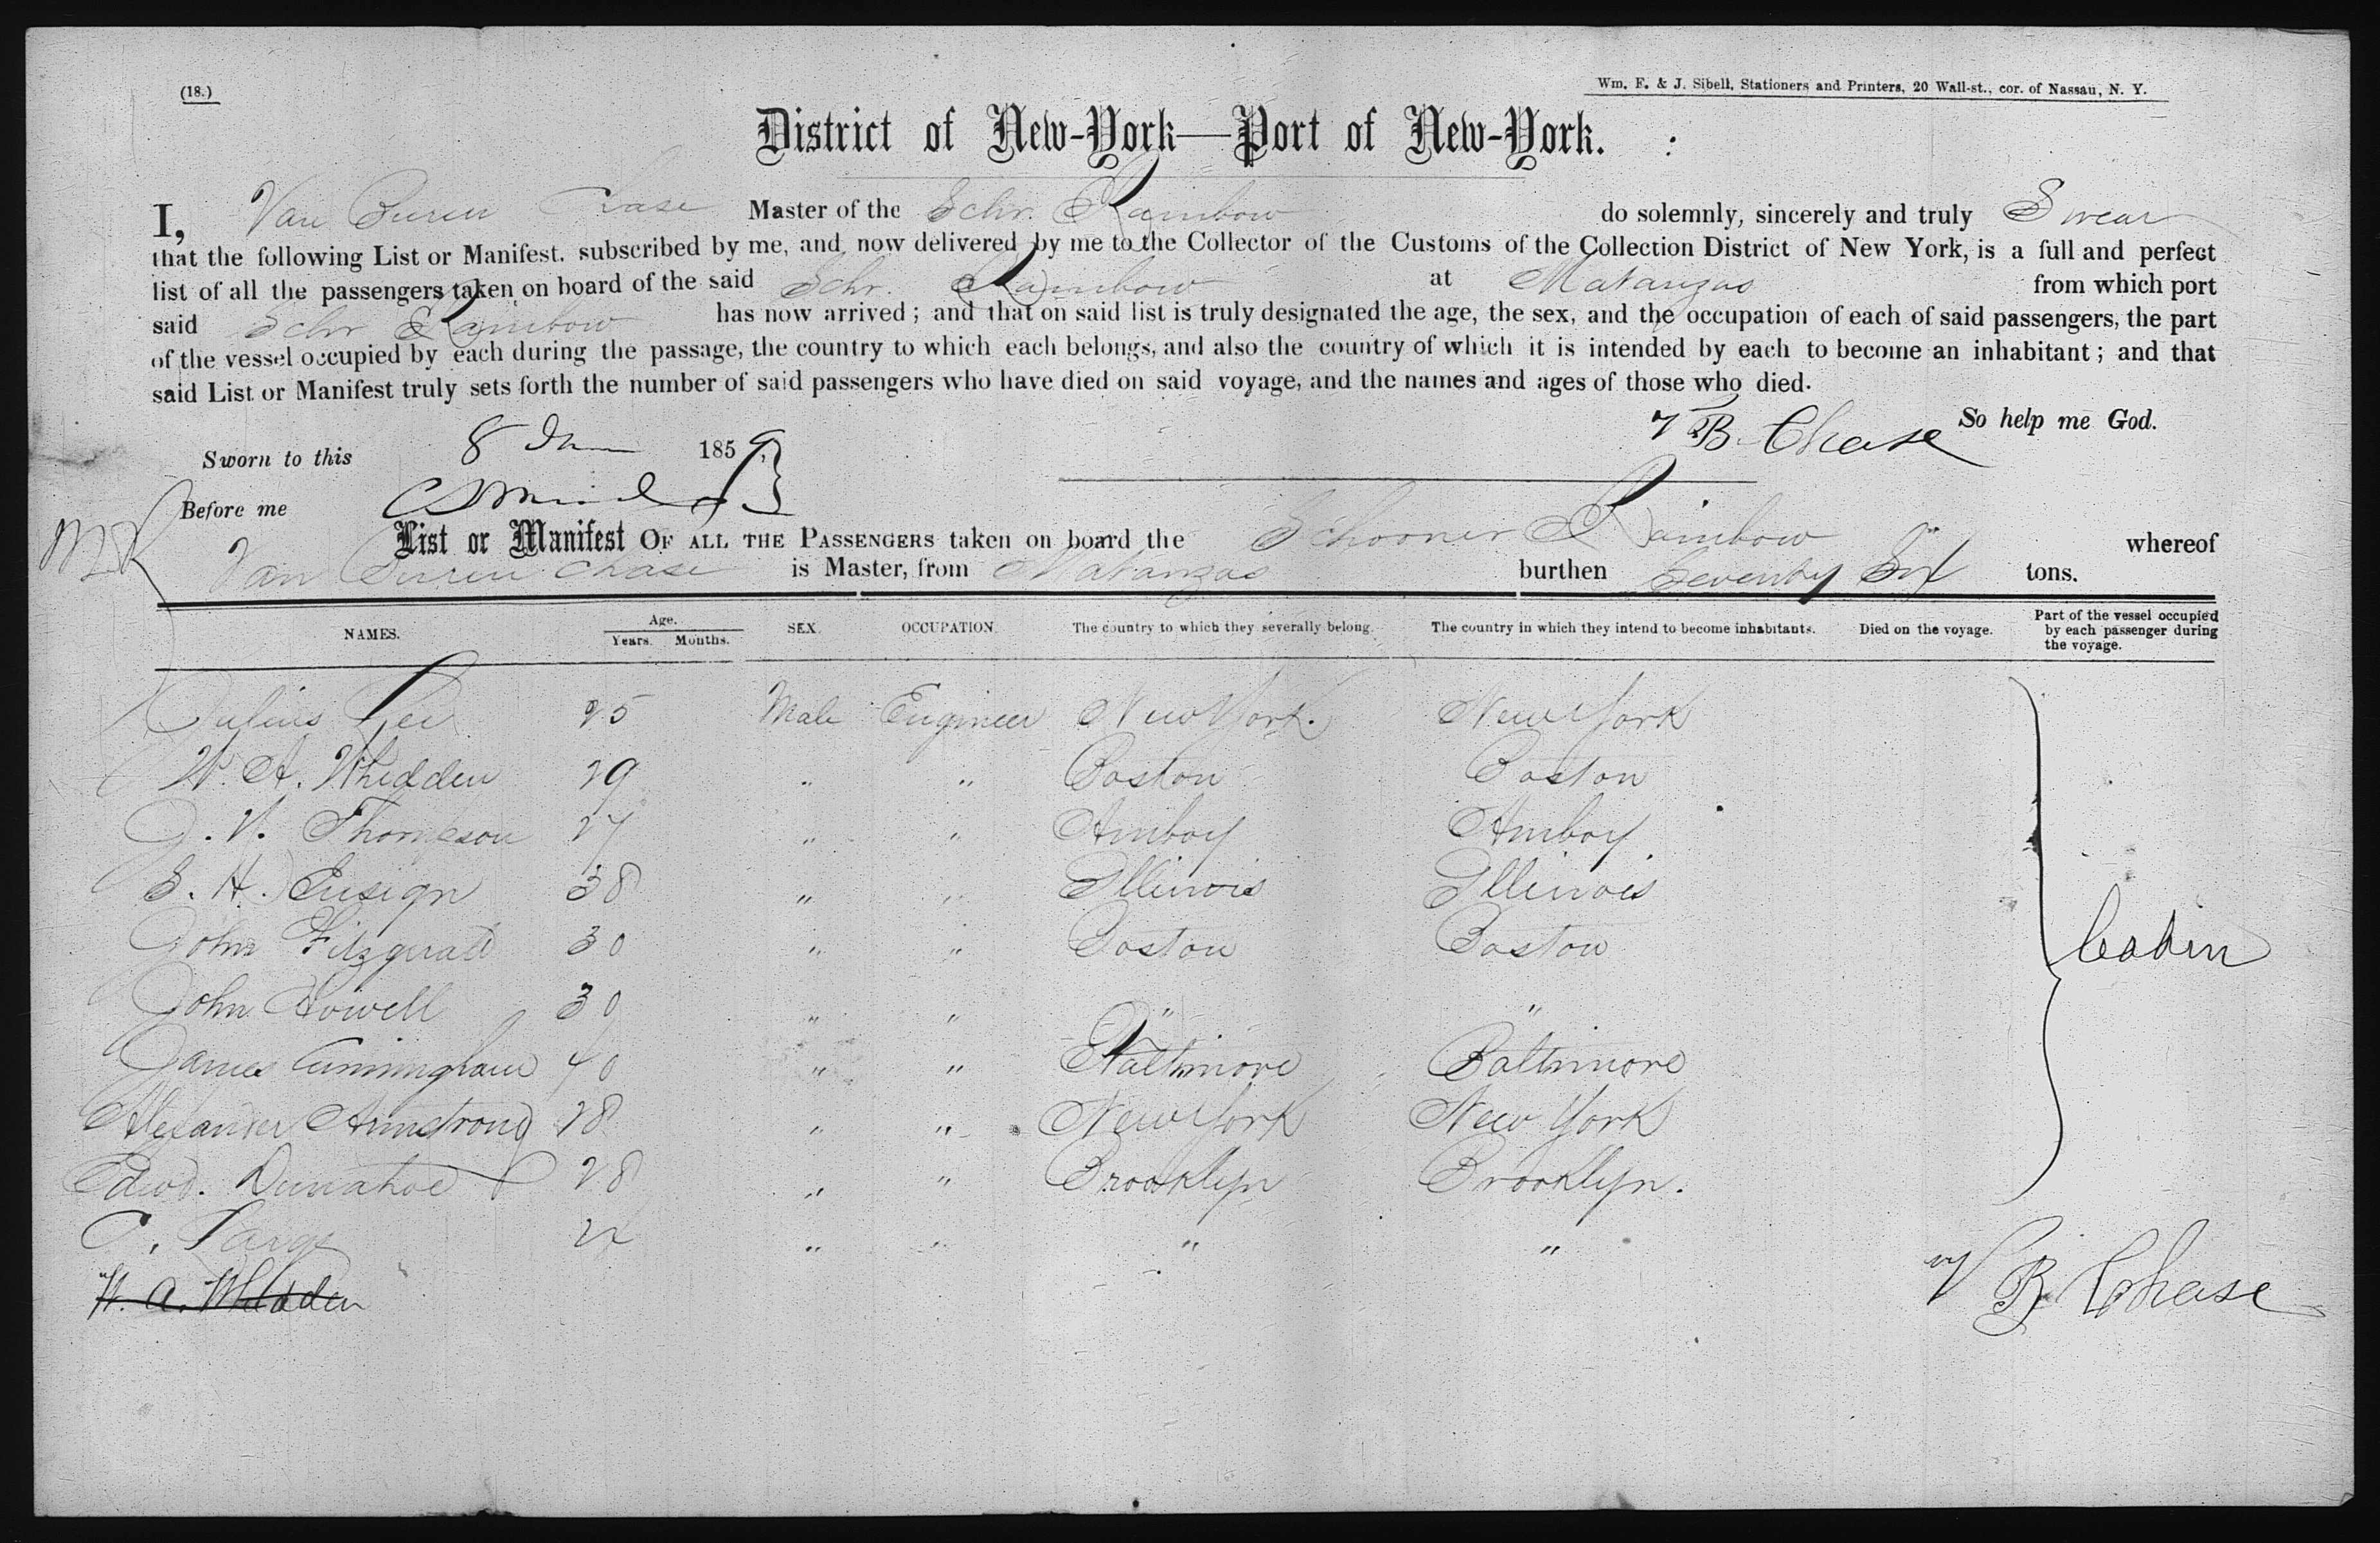 (18.)
Wm. F. & J. Sibell, Stationers and Printers, 20 Wall-st., cor. of Nassau, N. Y.
District of New-York—Port of New-York.
I, Van Buren Chase Master of the Schr. Rainbow do solemnly, sincerely and truly Swear
that the following List or Manifest, subscribed by me, and now delivered by me to the Collector of the Customs of the Collection District of New York, is a full and perfect
list of all the passengers taken on board of the said Schr. Rainbow at Matanzas from which port
said Schr Rainbow has now arrived; and that on said list is truly designated the age, the sex, and the occupation of each of said passengers, the part
of the vessel occupied by each during the passage, the country to which each belongs, and also the country of which it is intended by each to become an inhabitant; and that
said List or Manifest truly sets forth the number of said passengers who have died on said voyage, and the names and ages of those who died.
V B Chase So help me God.
Sworn to this 8 1859,
Before me
List or Manifest OF ALL THE PASSENGERS taken on board the Schooner Rainbow whereof
Van Buren Chase is Master, from Matanzas burthen Seventy Six tons.
NAMES. Age. Years. Months. SEX. OCCUPATION. The country to which they severally belong. The country in which they intend to become inhabitants. Died on the voyage. Part of the vessel occupied by each passenger during the voyage.
Julius 25 Male Engineer New York. New York
W. A. Whedden 29 " " Boston Boston
J. V. Thompson 27 " " Amboy Amboy
S. H. Ensign 38 " " Illinois Illinois
John Fitzgerald 30 " " Boston Boston
Cabin
John Howell 30 " " " "
James Cunningham 40 " " Baltimore Baltimore
Alexander Armstrong 28 " " New York New York
Edwd. Dunahoe 28 " " Brooklyn Brooklyn.
C. " " " "
W. A. Whedden
V B Chase